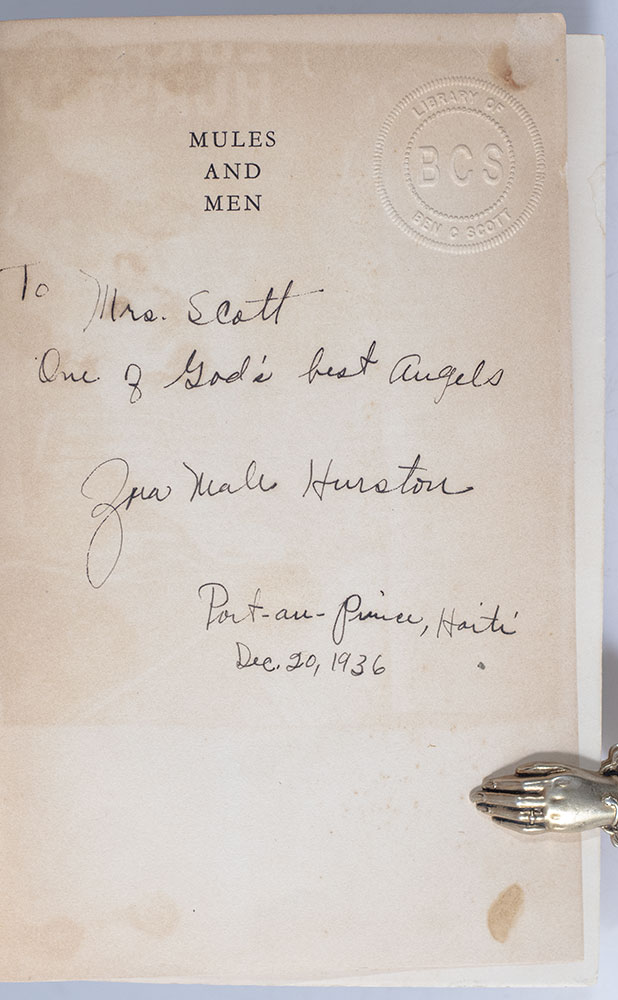 MULES
AND
MEN
LIBRARY OF
BCS
BEN C SCOTT
To Mrs. Scott
One of God's best Angels
Zora Neale Hurston
Port-au-Prince, Haiti
Dec. 20, 1936